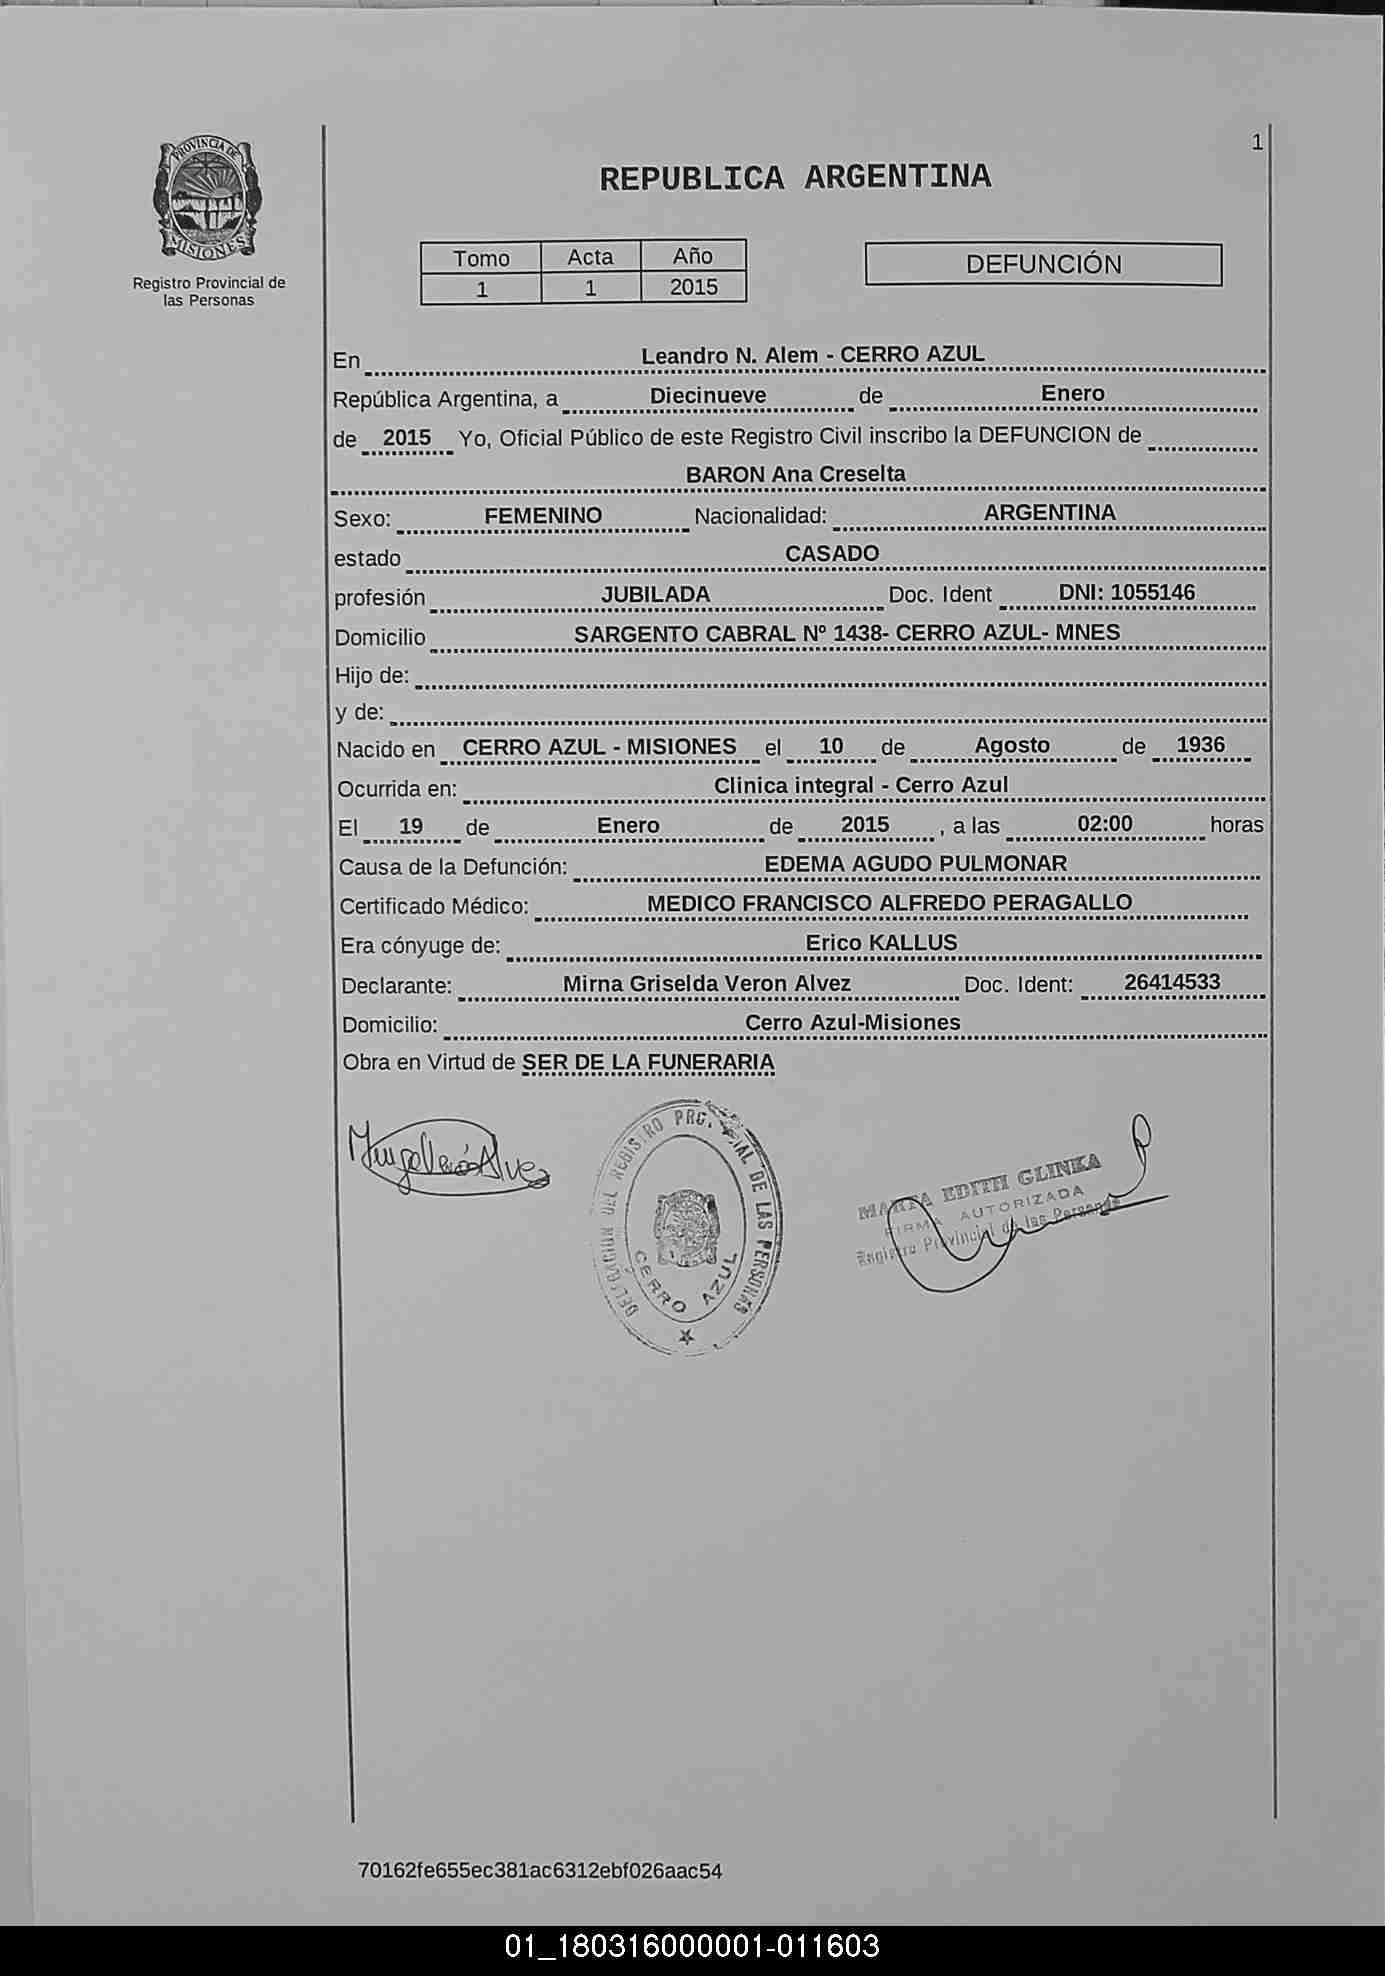 PROVINCIA DE
MISIONES
Registro Provincial de
las Personas
1
REPUBLICA ARGENTINA
Tomo Acta Año
1 1 2015
DEFUNCIÓN
En Leandro N. Alem - CERRO AZUL
República Argentina, a Diecinueve de Enero
de 2015 Yo, Oficial Público de este Registro Civil inscribo la DEFUNCION de
BARON Ana Creselta
Sexo: FEMENINO Nacionalidad: ARGENTINA
estado CASADO
profesión JUBILADA Doc. Ident DNI: 1055146
Domicilio SARGENTO CABRAL Nº 1438- CERRO AZUL- MNES
Hijo de:
y de:
Nacido en CERRO AZUL - MISIONES el 10 de Agosto de 1936
Ocurrida en: Clinica integral - Cerro Azul
El 19 de Enero de 2015 , a las 02:00 horas
Causa de la Defunción: EDEMA AGUDO PULMONAR
Certificado Médico: MEDICO FRANCISCO ALFREDO PERAGALLO
Era cónyuge de: Erico KALLUS
Declarante: Mirna Griselda Veron Alvez Doc. Ident: 26414533
Domicilio: Cerro Azul-Misiones
Obra en Virtud de SER DE LA FUNERARIA
DEL REGISTRO DE LAS PERSONAS
CERRO AZUL
MARTA EDITH GLINKA
FIRMA AUTORIZADA
Registro Provincial de las Personas
70162fe655ec381ac6312ebf026aac54
01_180316000001-011603